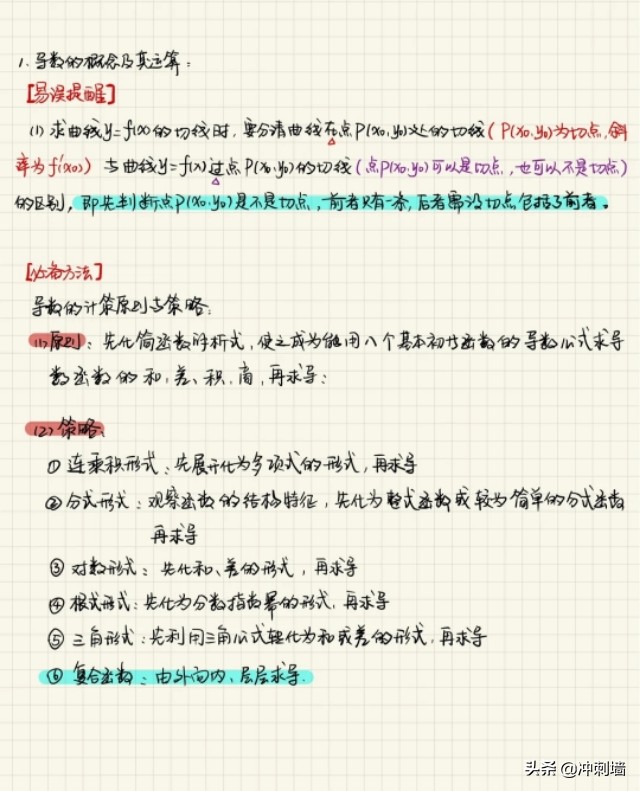 1. 导数的概念及其运算：
[易误提醒]
(1) 求曲线y=f(x)的切线时，要分清曲线在点P(x₀,y₀)处的切线(P(x₀,y₀)为切点，斜
率为f′(x₀)) 与曲线y=f(x)过点P(x₀,y₀)的切线(点P(x₀,y₀)可以是切点，也可以不是切点)
的区别，即先判断点P(x₀,y₀)是不是切点，前者只有一条，后者需设切点包括了前者。
[必备方法]
导数的计算原则与策略：
(1)原则：先化简函数解析式，使之成为能用八个基本初等函数的导数公式求导
数函数的和、差、积、商，再求导；
(2)策略：
① 连乘积形式：先展开化为多项式的形式，再求导
② 分式形式：观察函数的结构特征，先化为整式函数或较为简单的分式函数
再求导
③ 对数形式：先化和、差的形式，再求导
④ 根式形式：先化为分数指数幂的形式，再求导
⑤ 三角形式：先利用三角公式转化为和或差的形式，再求导
⑥ 复合函数：由外向内，层层求导.
头条 @冲刺墙